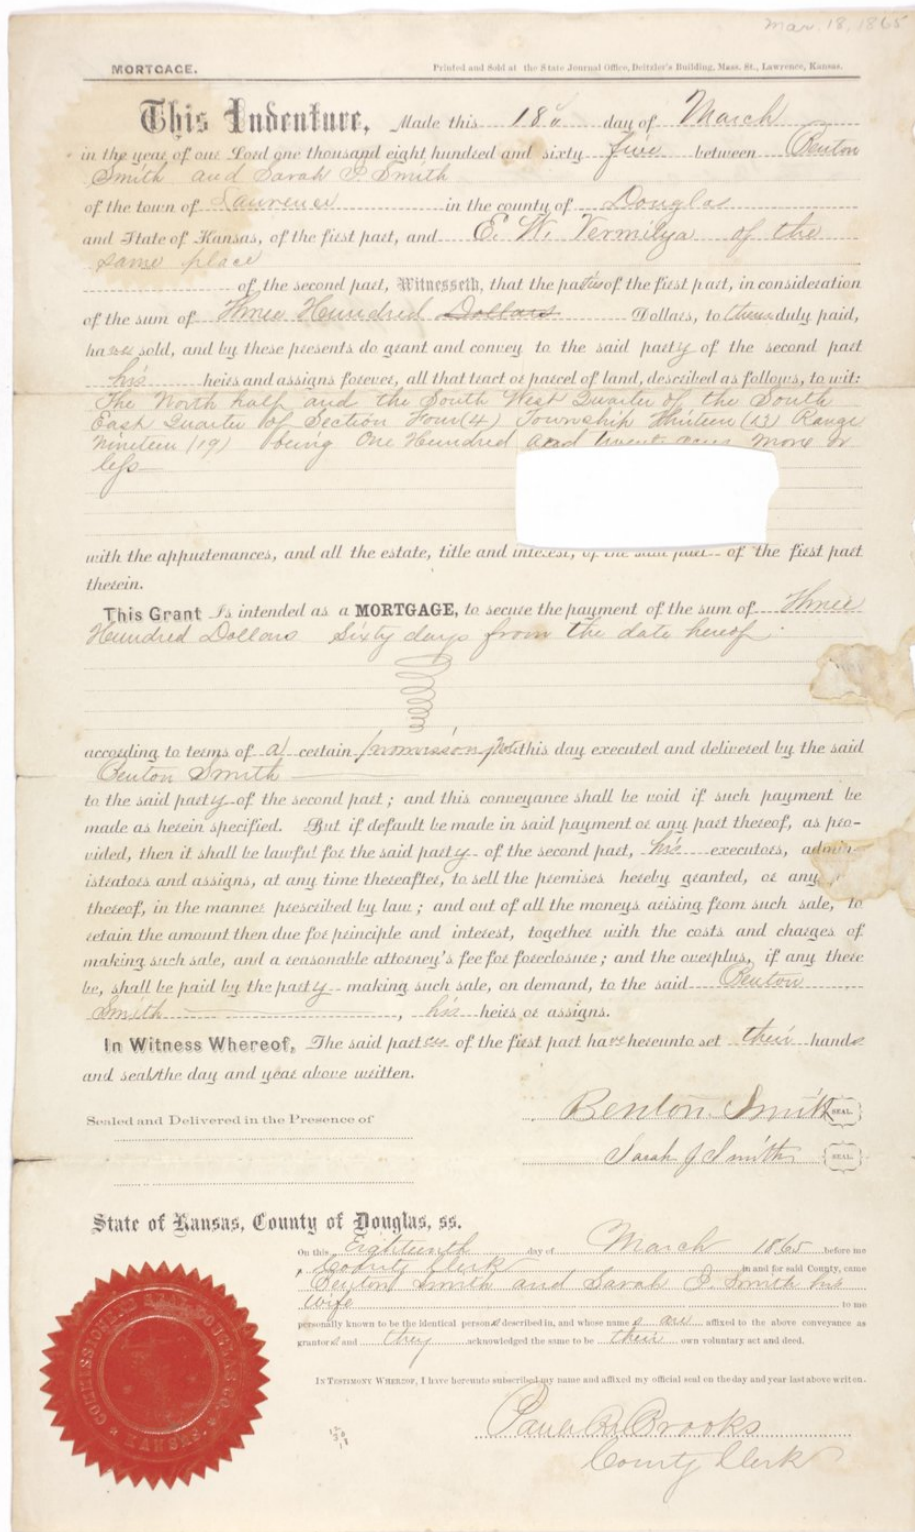 Mar. 18, 1865
MORTGAGE.
Printed and Sold at the State Journal Office, Deitzler's Building, Mass. St., Lawrence, Kansas.
This Indenture, Made this 18th day of March
in the year of our Lord one thousand eight hundred and sixty five between Benton
Smith and Sarah J. Smith
of the town of Lawrence in the county of Douglas
and State of Kansas, of the first part, and E. W. Vermilya of the
same place
of the second part, Witnesseth, that the parties of the first part, in consideration
of the sum of Three Hundred Dollars Dollars, to them duly paid,
have sold, and by these presents do grant and convey to the said party of the second part
his heirs and assigns forever, all that tract or parcel of land, described as follows, to wit:
The North half and the South West Quarter of the South
East Quarter of Section Four (4) Township Thirteen (13) Range
Nineteen (19) being One Hundred and twenty acres more or
less
with the appurtenances, and all the estate, title and interest, of the said part of the first part
therein.
This Grant Is intended as a MORTGAGE, to secure the payment of the sum of Three
Hundred Dollars Sixty days from the date hereof
according to terms of a certain promissory Note this day executed and delivered by the said
Benton Smith
to the said party of the second part; and this conveyance shall be void if such payment be
made as herein specified. But if default be made in said payment or any part thereof, as pro-
vided, then it shall be lawful for the said party of the second part, his executors, admin-
istrators and assigns, at any time thereafter, to sell the premises hereby granted, or any
thereof, in the manner prescribed by law; and out of all the moneys arising from such sale, to
retain the amount then due for principle and interest, together with the costs and charges of
making such sale, and a reasonable attorney's fee for foreclosure; and the overplus, if any there
be, shall be paid by the party making such sale, on demand, to the said Benton
Smith, his heirs or assigns.
In Witness Whereof, The said parties of the first part have hereunto set their hands
and seals the day and year above written.
Sealed and Delivered in the Presence of
Benton Smith SEAL.
Sarah J Smith SEAL.
State of Kansas, County of Douglas, ss.
On this Eighteenth day of March 1865 before me
County Clerk in and for said County, came
Benton Smith and Sarah J. Smith his
wife to me
personally known to be the identical persons described in, and whose names are affixed to the above conveyance as
grantors and they acknowledged the same to be their own voluntary act and deed.
IN TESTIMONY WHEREOF, I have hereunto subscribed my name and affixed my official seal on the day and year last above writen.
Brooks
County Clerk
COMMISSIONERS DOUGLAS CO.
KANSAS